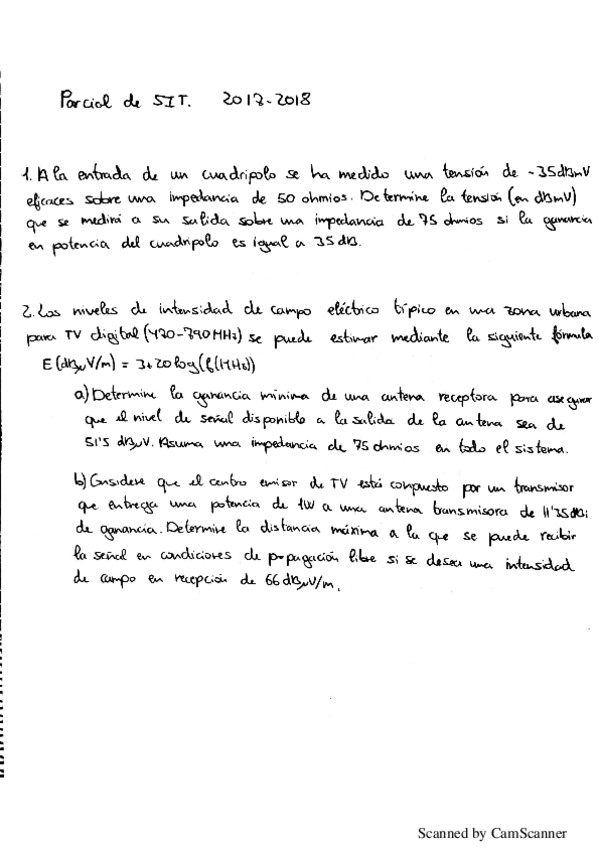 Parcial de SIT. 2017-2018
1. A la entrada de un cuadripolo se ha medido una tensión de -35dBmV
eficaces sobre una impedancia de 50 ohmios. Determine la tensión (en dBmV)
que se medirá a su salida sobre una impedancia de 75 ohmios si la ganancia
en potencia del cuadripolo es igual a 35 dB.
2. Los niveles de intensidad de campo eléctrico típico en una zona urbana
para TV digital (470-790 MHz) se puede estimar mediante la siguiente fórmula
E(dBμV/m) = 3+20log(f(MHz))
a) Determine la ganancia mínima de una antena receptora para asegurar
que el nivel de señal disponible a la salida de la antena sea de
51'5 dBμV. Asuma una impedancia de 75 ohmios en todo el sistema.
b) Considere que el centro emisor de TV está compuesto por un transmisor
que entrega una potencia de 1W a una antena transmisora de 11'35 dBi
de ganancia. Determine la distancia máxima a la que se puede recibir
la señal en condiciones de propagación libre si se desea una intensidad
de campo en recepción de 66 dBμV/m.
Scanned by CamScanner